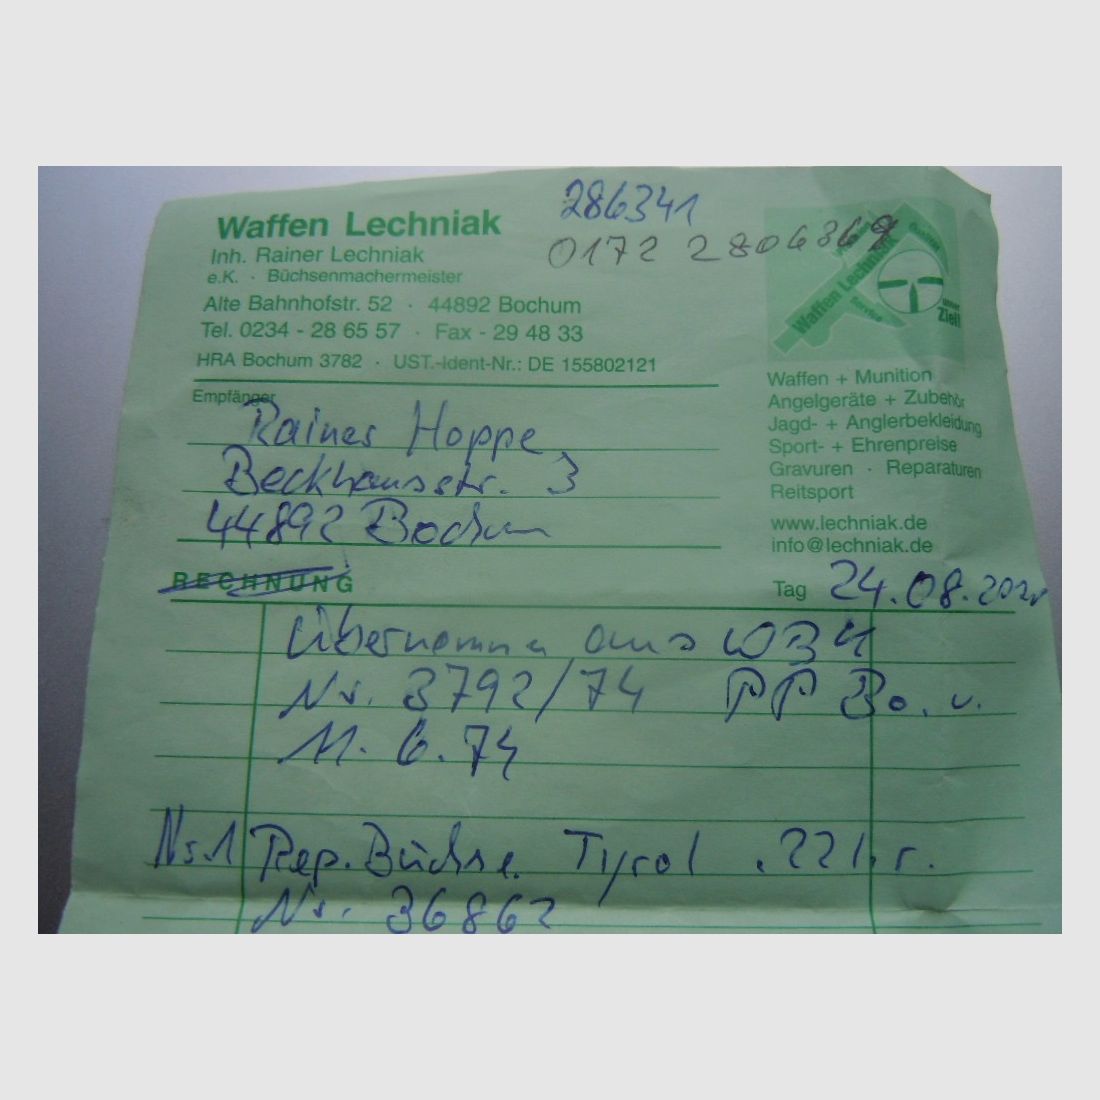 Waffen Lechniak
286341
Inh. Rainer Lechniak
0172 2806369
e.K. · Büchsenmachermeister
Alte Bahnhofstr. 52 · 44892 Bochum
Tel. 0234 - 28 65 57 · Fax - 29 48 33
HRA Bochum 3782 · UST.-Ident-Nr.: DE 155802121
Waffen Lechniak
Service
Qualität
unser
Ziel!
Waffen + Munition
Angelgeräte + Zubehör
Jagd- + Anglerbekleidung
Sport- + Ehrenpreise
Gravuren · Reparaturen
Reitsport
www.lechniak.de
info@lechniak.de
Empfänger
Rainer Hoppe
Beckhausstr. 3
44892 Bochum
RECHNUNG
Tag 24.08.
Übernommen aus WBK
Nr. 3792/74 PP Bo. v.
11. 6. 74
Nr. 1 Rep. Büchse Tyrol .22 l. r.
Nr. 36862